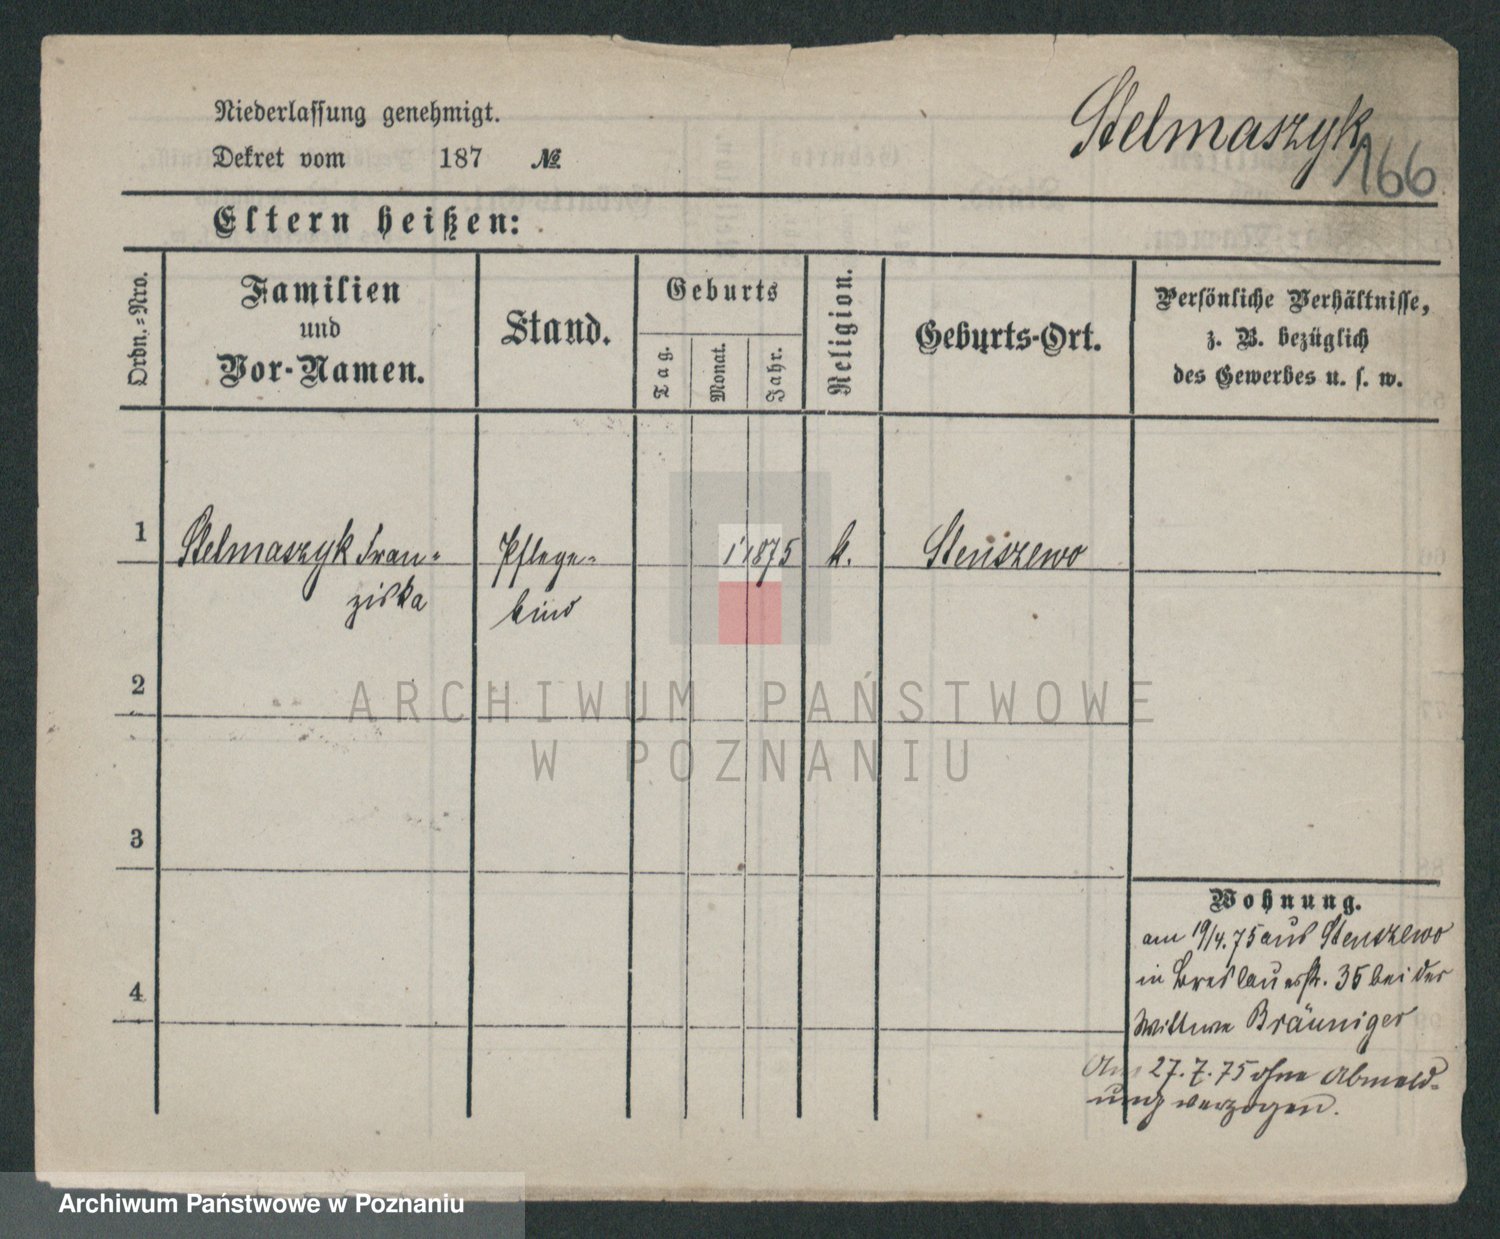 Stelmaszyk
166
Niederlassung genehmigt.
Dekret vom 187 №
Eltern heißen:
Ordn.-Nro.
Familien
und
Vor-Namen.
Stand.
Geburts
Tag.
Monat.
Jahr.
Religion.
Geburts-Ort.
Persönliche Verhältnisse,
z. B. bezüglich
des Gewerbes u. s. w.
1 Stelmaszyk Fran- Pflege- 1 1875 k. Stenszewo
ziska kind
2
3
4
Wohnung.
am 19/4. 75 aus Stenszewo
in Breslauerstr. 35 bei der
Wittwe Bräuniger
Am 27. 7. 75 ohne Abmeld-
ung verzogen.
ARCHIWUM PAŃSTWOWE
W POZNANIU
Archiwum Państwowe w Poznaniu